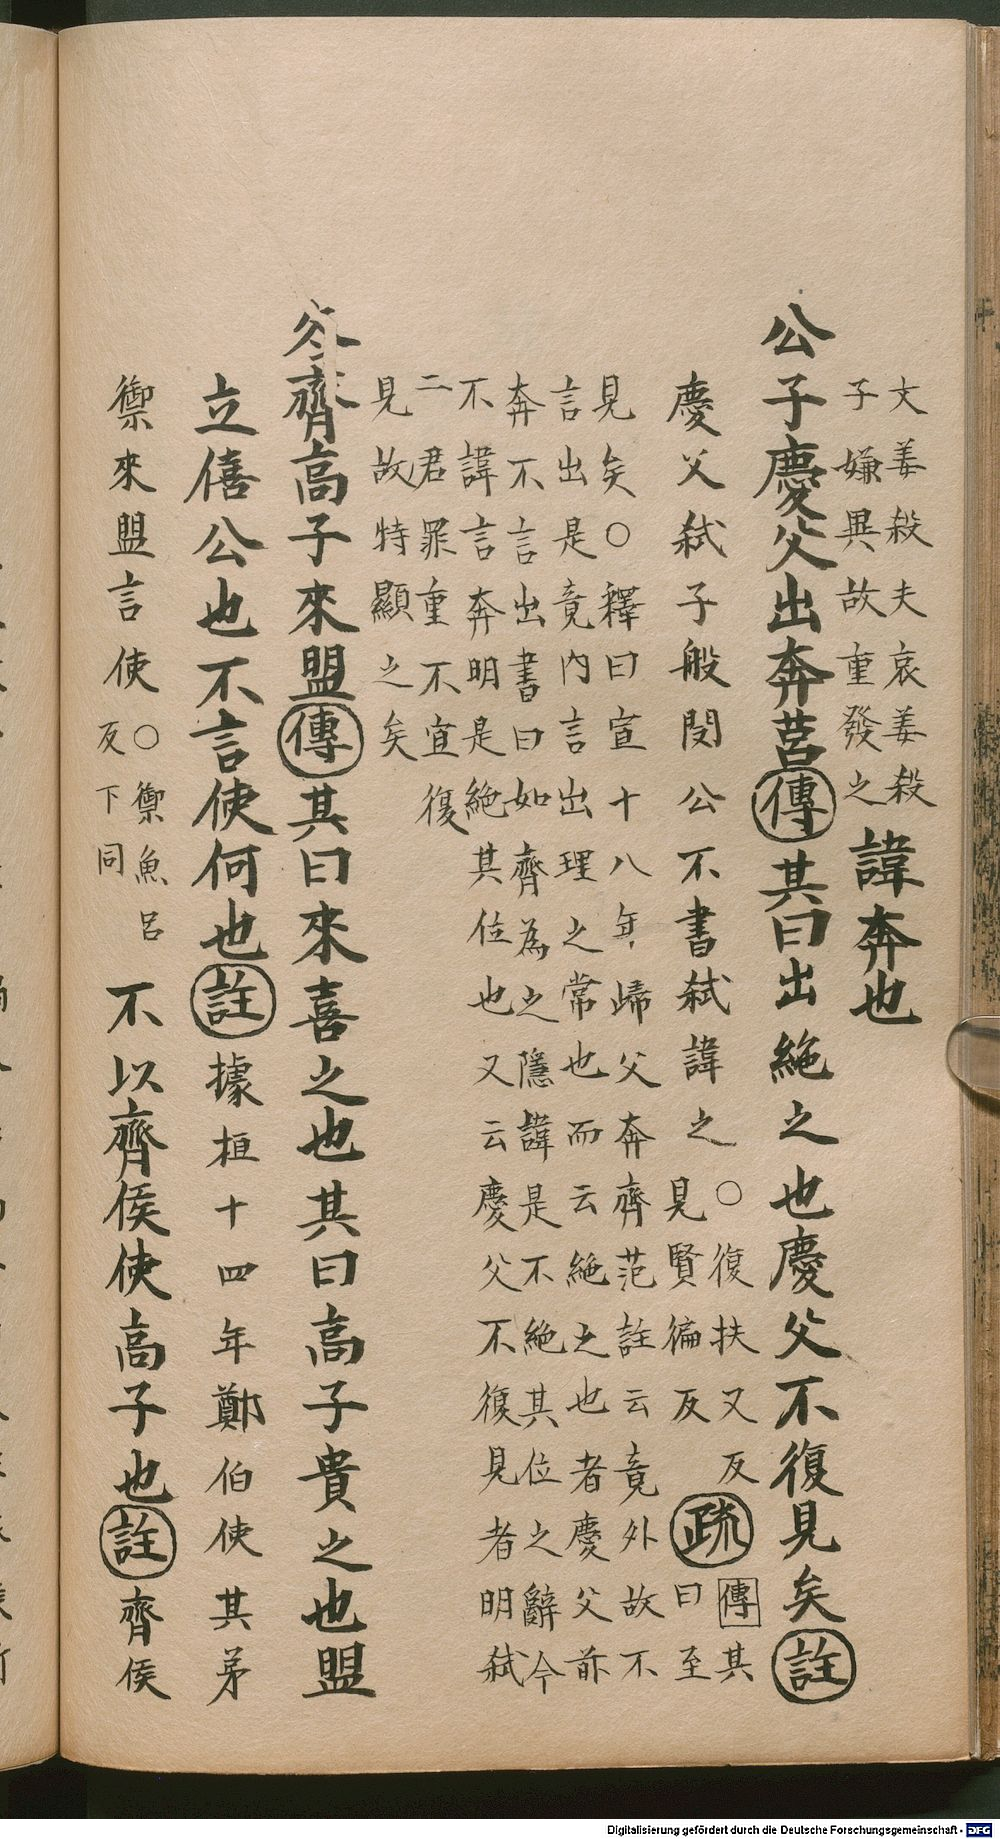 文姜殺夫哀姜殺
子嫌異故重發之
諱奔也
公子慶父出奔莒傳其曰出絶之也慶父不復見矣註
慶父弒子般閔公不書弒諱之
○復扶又反
見賢徧反
疏
傳其
曰至
見矣○釋曰宣十八年歸父奔齊范註云竟外故不
言出是竟內言出理之常也而云絶之也者慶父前
奔不言出書曰如齊為之隱諱是不絶其位之辭今
不諱言奔明是絶其位也又云慶父不復見者明弒
二君罪重不宜復
見故特顯之矣
冬齊高子來盟傳其曰來喜之也其曰高子貴之也盟
立僖公也不言使何也註據桓十四年鄭伯使其弟
禦來盟言使
○禦魚呂
反下同
不以齊侯使高子也註齊侯
Digitalisierung gefördert durch die Deutsche Forschungsgemeinschaft - DFG